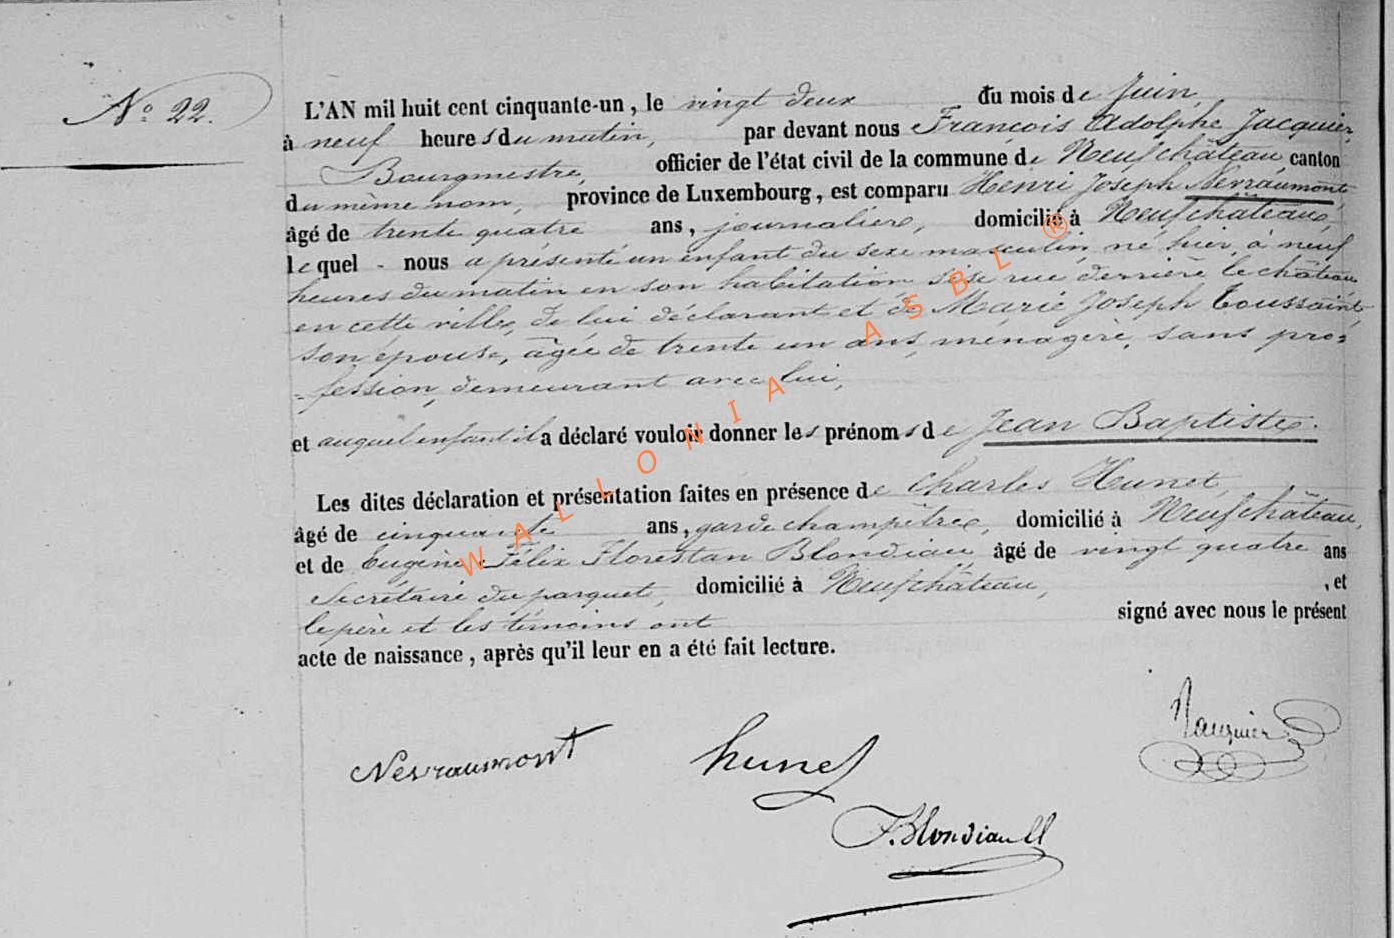 N.° 22.
L'AN mil huit cent cinquante-un, le vingt deux du mois de Juin,
à neuf heures du matin, par devant nous François Adolphe Jacquier,
Bourgmestre, officier de l'état civil de la commune de Neufchâteau canton
du même nom, province de Luxembourg, est comparu Henri Joseph Nevraumont,
âgé de trente quatre ans, journalière, domicilié à Neufchâteau,
lequel - nous a présenté un enfant du sexe masculin, né hier, à neuf
heures du matin en son habitation sise rue derrière le château
en cette ville, de lui déclarant et de Marie Joseph Toussaint,
son épouse, âgée de trente un ans, ménagère, sans pro=
-fession, demeurant avec lui,
et auquel enfant il a déclaré vouloir donner les prénoms de Jean Baptiste.
Les dites déclaration et présentation faites en présence de Charles Hunet,
âgé de cinquante ans, garde champêtre, domicilié à Neufchâteau,
et de Eugène Félix Florestan Blondiau, âgé de vingt quatre ans
Secrétaire du parquet, domicilié à Neufchâteau, , et
le père et les témoins ont signé avec nous le présent
acte de naissance, après qu'il leur en a été fait lecture.
Nevraumont hunet Jacquier
F. Blondiau
WALLONIA ASBL ®